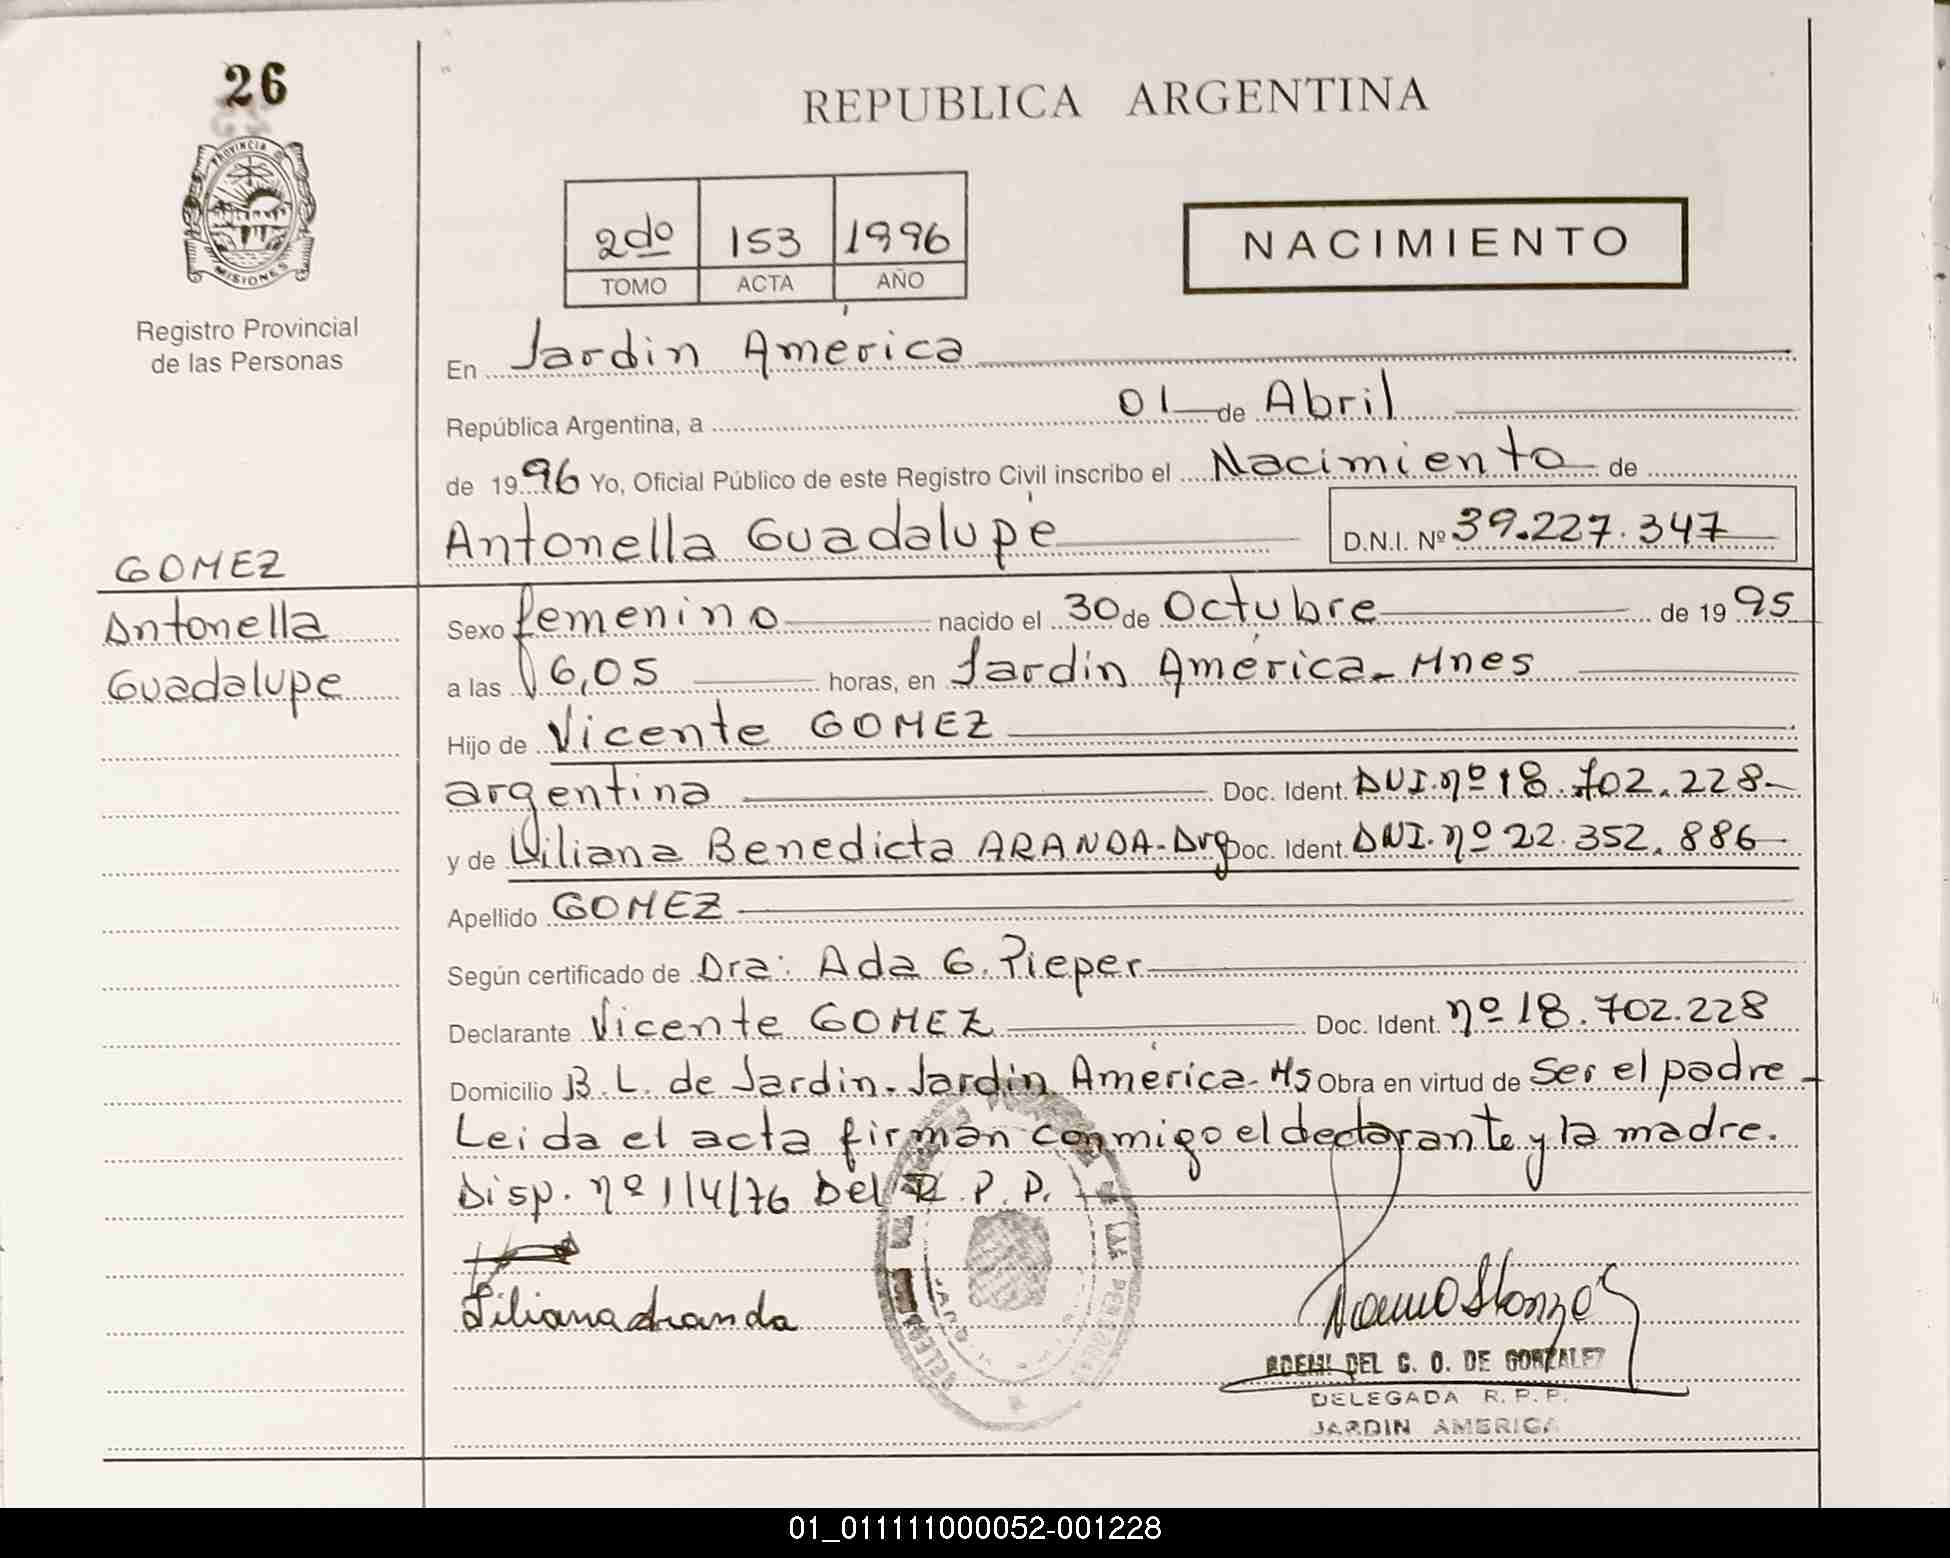 26
PROVINCIA
MISIONES
Registro Provincial
de las Personas
GOMEZ
Antonella
Guadalupe
REPUBLICA ARGENTINA
2do 153 1996
TOMO ACTA AÑO
NACIMIENTO
En Jardín América
República Argentina, a 01 de Abril
de 1996 Yo, Oficial Público de este Registro Civil inscribo el Nacimiento de
Antonella Guadalupe D.N.I. Nº 39.227.347
Sexo femenino nacido el 30 de Octubre de 1995
a las 6,05 horas, en Jardín América - Mnes
Hijo de Vicente GOMEZ
argentina Doc. Ident. DNI. nº 18.702.228-
y de Liliana Benedicta ARANDA - Arg Doc. Ident. DNI. nº 22.352.886
Apellido GOMEZ
Según certificado de Dra: Ada G. Pieper
Declarante Vicente GOMEZ Doc. Ident. nº 18.702.228
Domicilio B. L. de Jardin - Jardin América - Ms Obra en virtud de Ser el padre -
Leida el acta firman conmigo el declarante y la madre.
Disp. nº 1/4/76 Del R. P. P.
Liliana Aranda
DEL C. O. DE GONZALEZ
DELEGADA R. P. P.
JARDIN AMERICA
01_011111000052-001228